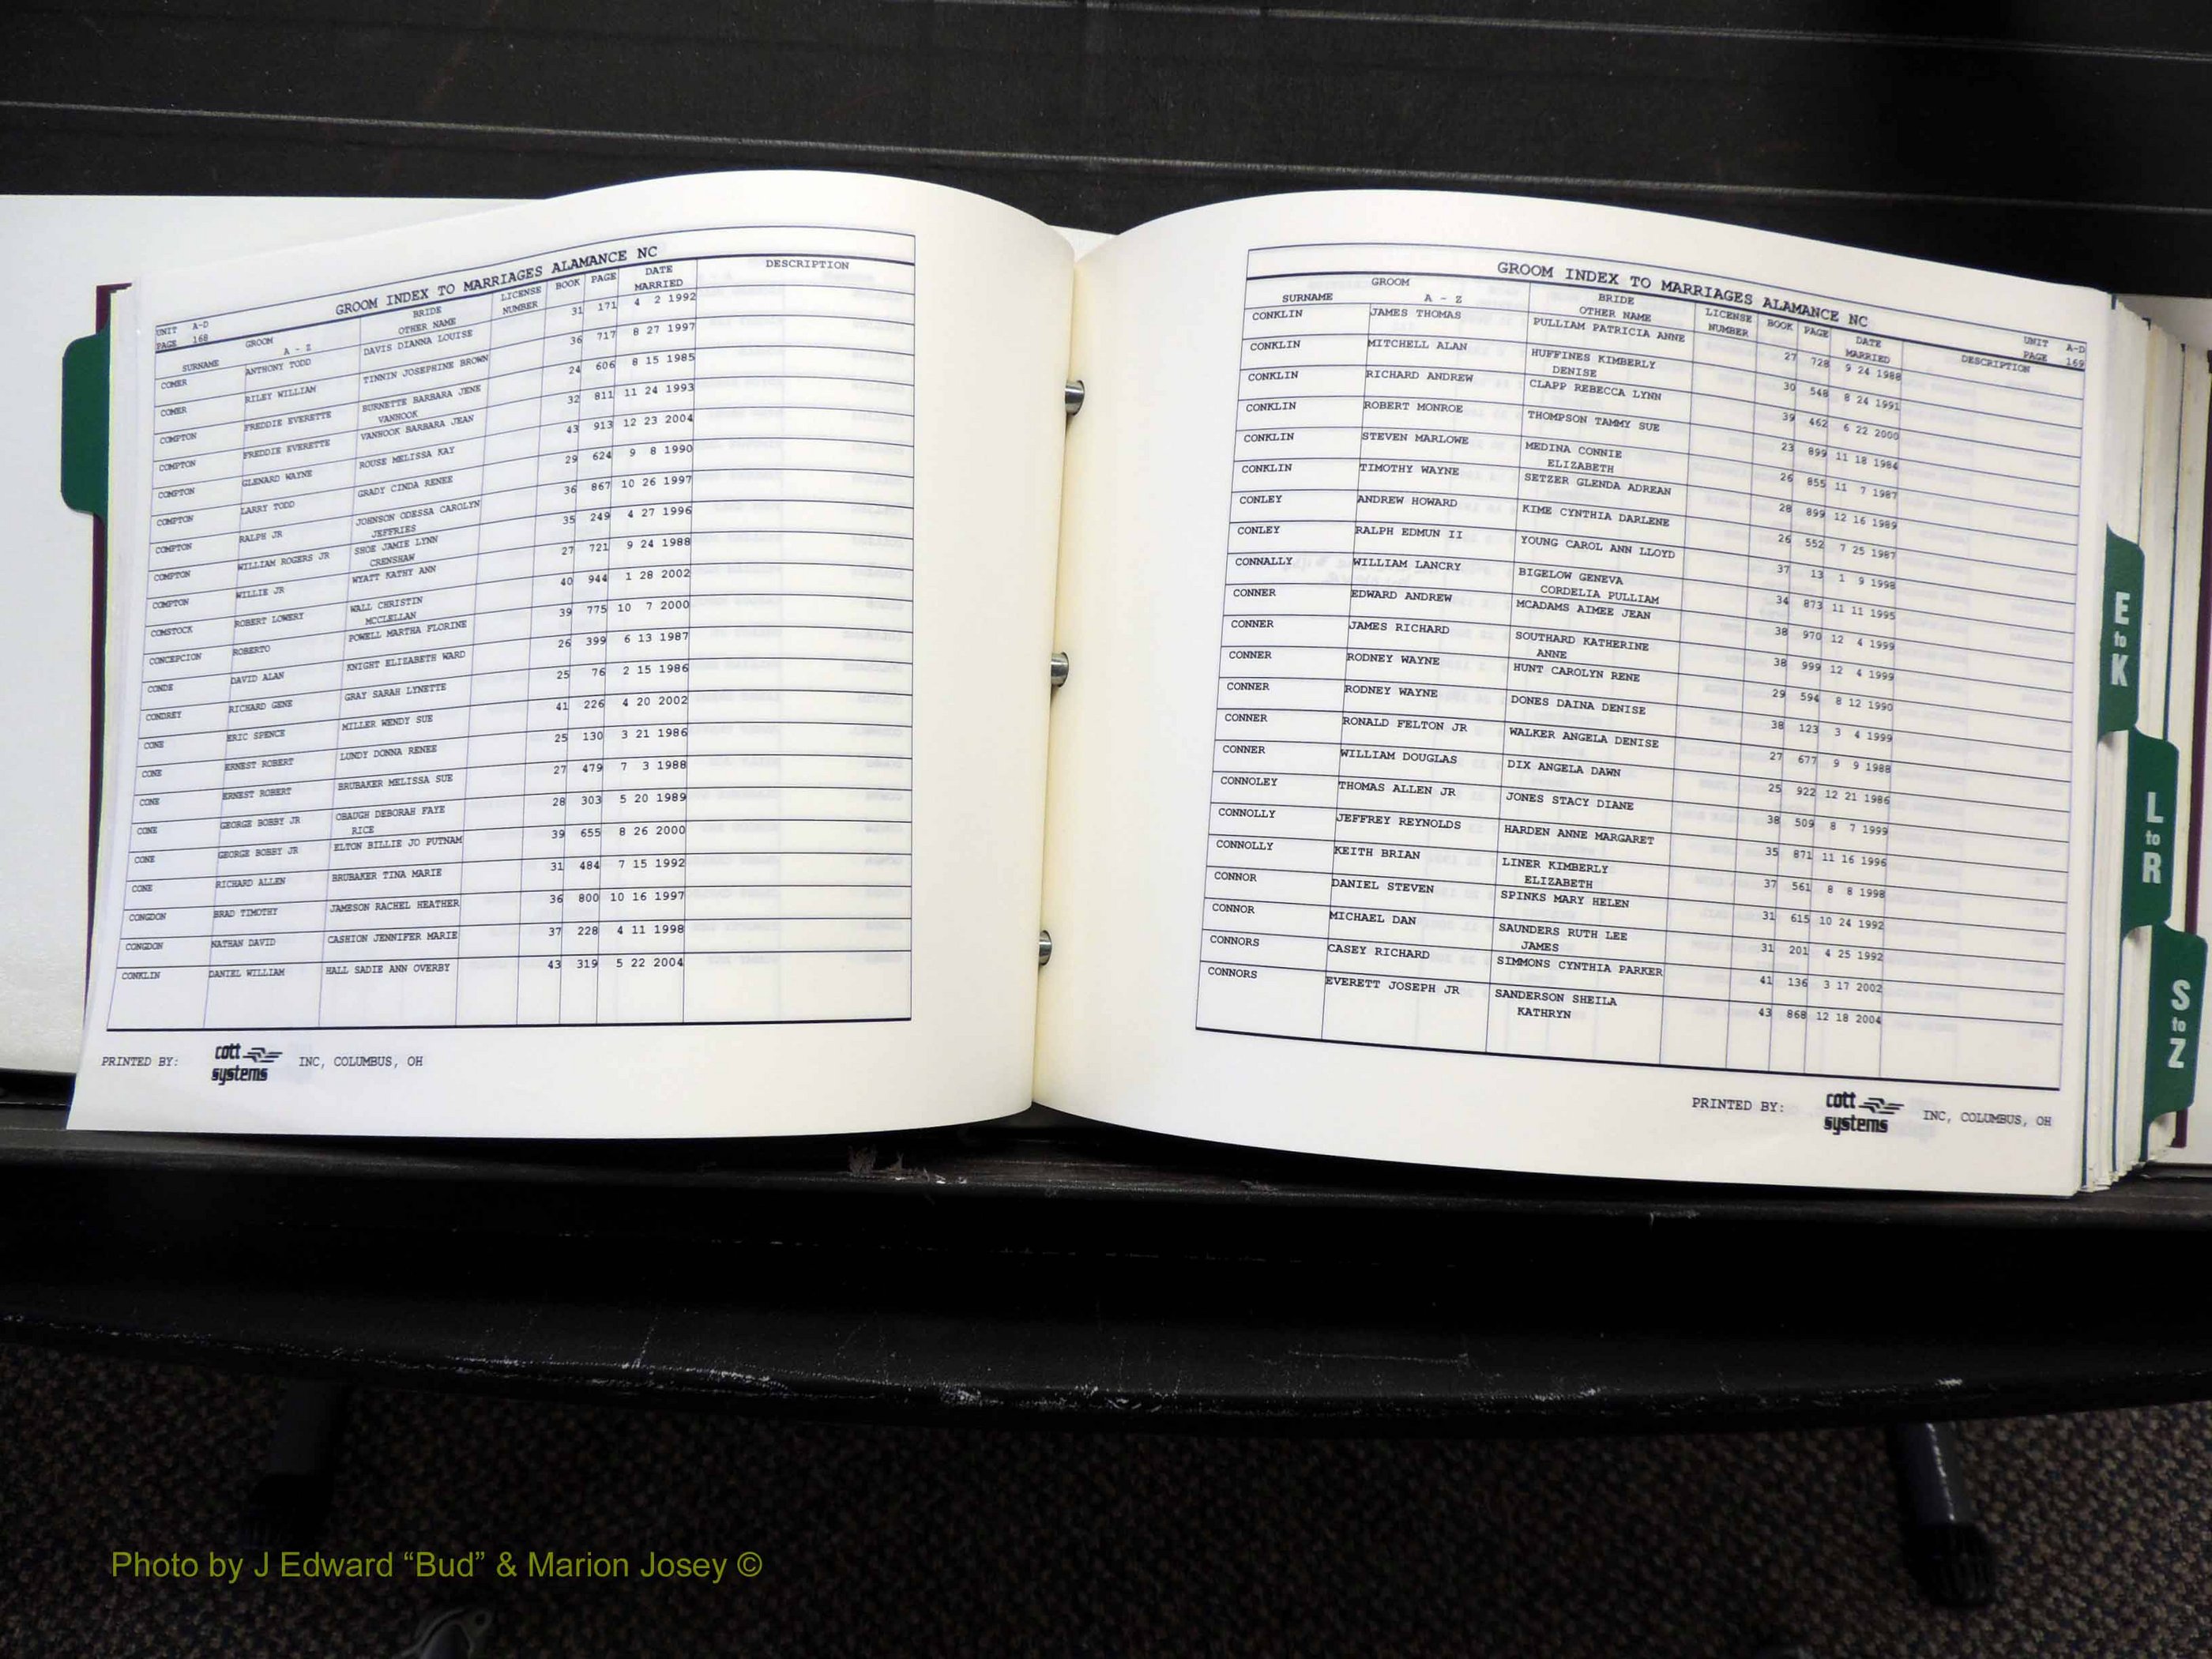 GROOM INDEX TO MARRIAGES ALAMANCE NC
UNIT A-D
PAGE 168
SURNAME GROOM A - Z BRIDE OTHER NAME LICENSE NUMBER BOOK PAGE DATE MARRIED DESCRIPTION
COMER ANTHONY TODD DAVIS DIANNA LOUISE 31 171 4 2 1992
COMER RILEY WILLIAM TINNIN JOSEPHINE BROWN 36 717 8 27 1997
COMPTON FREDDIE EVERETTE BURNETTE BARBARA JENE 24 606 8 15 1985
VANHOOK
COMPTON FREDDIE EVERETTE VANHOOK BARBARA JEAN 32 811 11 24 1993
COMPTON GLENARD WAYNE ROUSE MELISSA KAY 43 913 12 23 2004
COMPTON LARRY TODD GRADY CINDA RENEE 29 624 9 8 1990
COMPTON RALPH JR JOHNSON ODESSA CAROLYN 36 867 10 26 1997
JEFFRIES
COMPTON WILLIAM ROGERS JR SHOE JAMIE LYNN 35 249 4 27 1996
CRENSHAW
COMPTON WILLIE JR WYATT KATHY ANN 27 721 9 24 1988
COMSTOCK ROBERT LOWERY WALL CHRISTIN 40 944 1 28 2002
MCCLELLAN
CONCEPCION ROBERTO POWELL MARTHA FLORINE 39 775 10 7 2000
CONDE DAVID ALAN KNIGHT ELIZABETH WARD 26 399 6 13 1987
CONDREY RICHARD GENE GRAY SARAH LYNETTE 25 76 2 15 1986
CONE ERIC SPENCE MILLER WENDY SUE 41 226 4 20 2002
CONE ERNEST ROBERT LUNDY DONNA RENEE 25 130 3 21 1986
CONE ERNEST ROBERT BRUBAKER MELISSA SUE 27 479 7 3 1988
CONE GEORGE BOBBY JR OBAUGH DEBORAH FAYE 28 303 5 20 1989
RICE
CONE GEORGE BOBBY JR ELTON BILLIE JO PUTNAM 39 655 8 26 2000
CONE RICHARD ALLEN BRUBAKER TINA MARIE 31 484 7 15 1992
CONGDON BRAD TIMOTHY JAMESON RACHEL HEATHER 36 800 10 16 1997
CONGDON NATHAN DAVID CASHION JENNIFER MARIE 37 228 4 11 1998
CONKLIN DANIEL WILLIAM HALL SADIE ANN OVERBY 43 319 5 22 2004
PRINTED BY: cott systems INC, COLUMBUS, OH
GROOM INDEX TO MARRIAGES ALAMANCE NC
UNIT A-D
PAGE 169
SURNAME GROOM A - Z BRIDE OTHER NAME LICENSE NUMBER BOOK PAGE DATE MARRIED DESCRIPTION
CONKLIN JAMES THOMAS PULLIAM PATRICIA ANNE 27 728 9 24 1988
CONKLIN MITCHELL ALAN HUFFINES KIMBERLY 30 548 8 24 1991
DENISE
CONKLIN RICHARD ANDREW CLAPP REBECCA LYNN 39 462 6 22 2000
CONKLIN ROBERT MONROE THOMPSON TAMMY SUE 23 899 11 18 1984
CONKLIN STEVEN MARLOWE MEDINA CONNIE 26 855 11 7 1987
ELIZABETH
CONKLIN TIMOTHY WAYNE SETZER GLENDA ADREAN 28 899 12 16 1989
CONLEY ANDREW HOWARD KIME CYNTHIA DARLENE 26 552 7 25 1987
CONLEY RALPH EDMUN II YOUNG CAROL ANN LLOYD 37 13 1 9 1998
CONNALLY WILLIAM LANCRY BIGELOW GENEVA 34 873 11 11 1995
CORDELIA PULLIAM
CONNER EDWARD ANDREW MCADAMS AIMEE JEAN 38 970 12 4 1999
CONNER JAMES RICHARD SOUTHARD KATHERINE 38 999 12 4 1999
ANNE
CONNER RODNEY WAYNE HUNT CAROLYN RENE 29 594 8 12 1990
CONNER RODNEY WAYNE DONES DAINA DENISE 38 123 3 4 1999
CONNER RONALD FELTON JR WALKER ANGELA DENISE 27 677 9 9 1988
CONNER WILLIAM DOUGLAS DIX ANGELA DAWN 25 922 12 21 1986
CONNOLEY THOMAS ALLEN JR JONES STACY DIANE 38 509 8 7 1999
CONNOLLY JEFFREY REYNOLDS HARDEN ANNE MARGARET 35 871 11 16 1996
CONNOLLY KEITH BRIAN LINER KIMBERLY 37 561 8 8 1998
ELIZABETH
CONNOR DANIEL STEVEN SPINKS MARY HELEN 31 615 10 24 1992
CONNOR MICHAEL DAN SAUNDERS RUTH LEE 31 201 4 25 1992
JAMES
CONNORS CASEY RICHARD SIMMONS CYNTHIA PARKER 41 136 3 17 2002
CONNORS EVERETT JOSEPH JR SANDERSON SHEILA 43 868 12 18 2004
KATHRYN
PRINTED BY: cott systems INC, COLUMBUS, OH
E to K
L to R
S to Z
Photo by J Edward “Bud” & Marion Josey ©